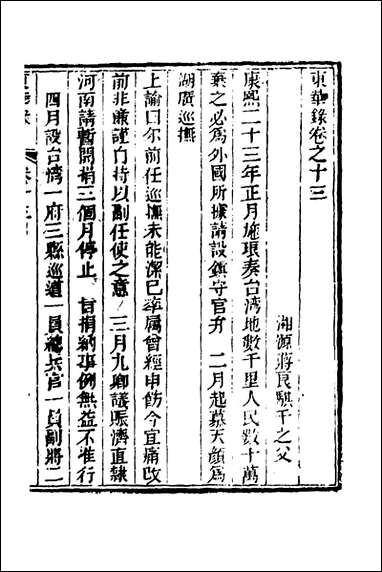 東華錄卷之十三
湘源蔣良騏千之父
康熙二十三年正月施琅奏台湾地數千里人民數十萬
棄之必爲外國所據請設鎮守官弁 二月起慕天顏爲
湖廣巡撫
上諭曰尔前任巡撫未能潔已率屬曾經申飭今宜痛改
前非廉謹自持以副任使之意 三月九卿議賑濟直隸
河南請暫開捐三個月停止 旨捐納事例無益不准行
四月設台湾一府三縣巡道一員總兵官一員副將二